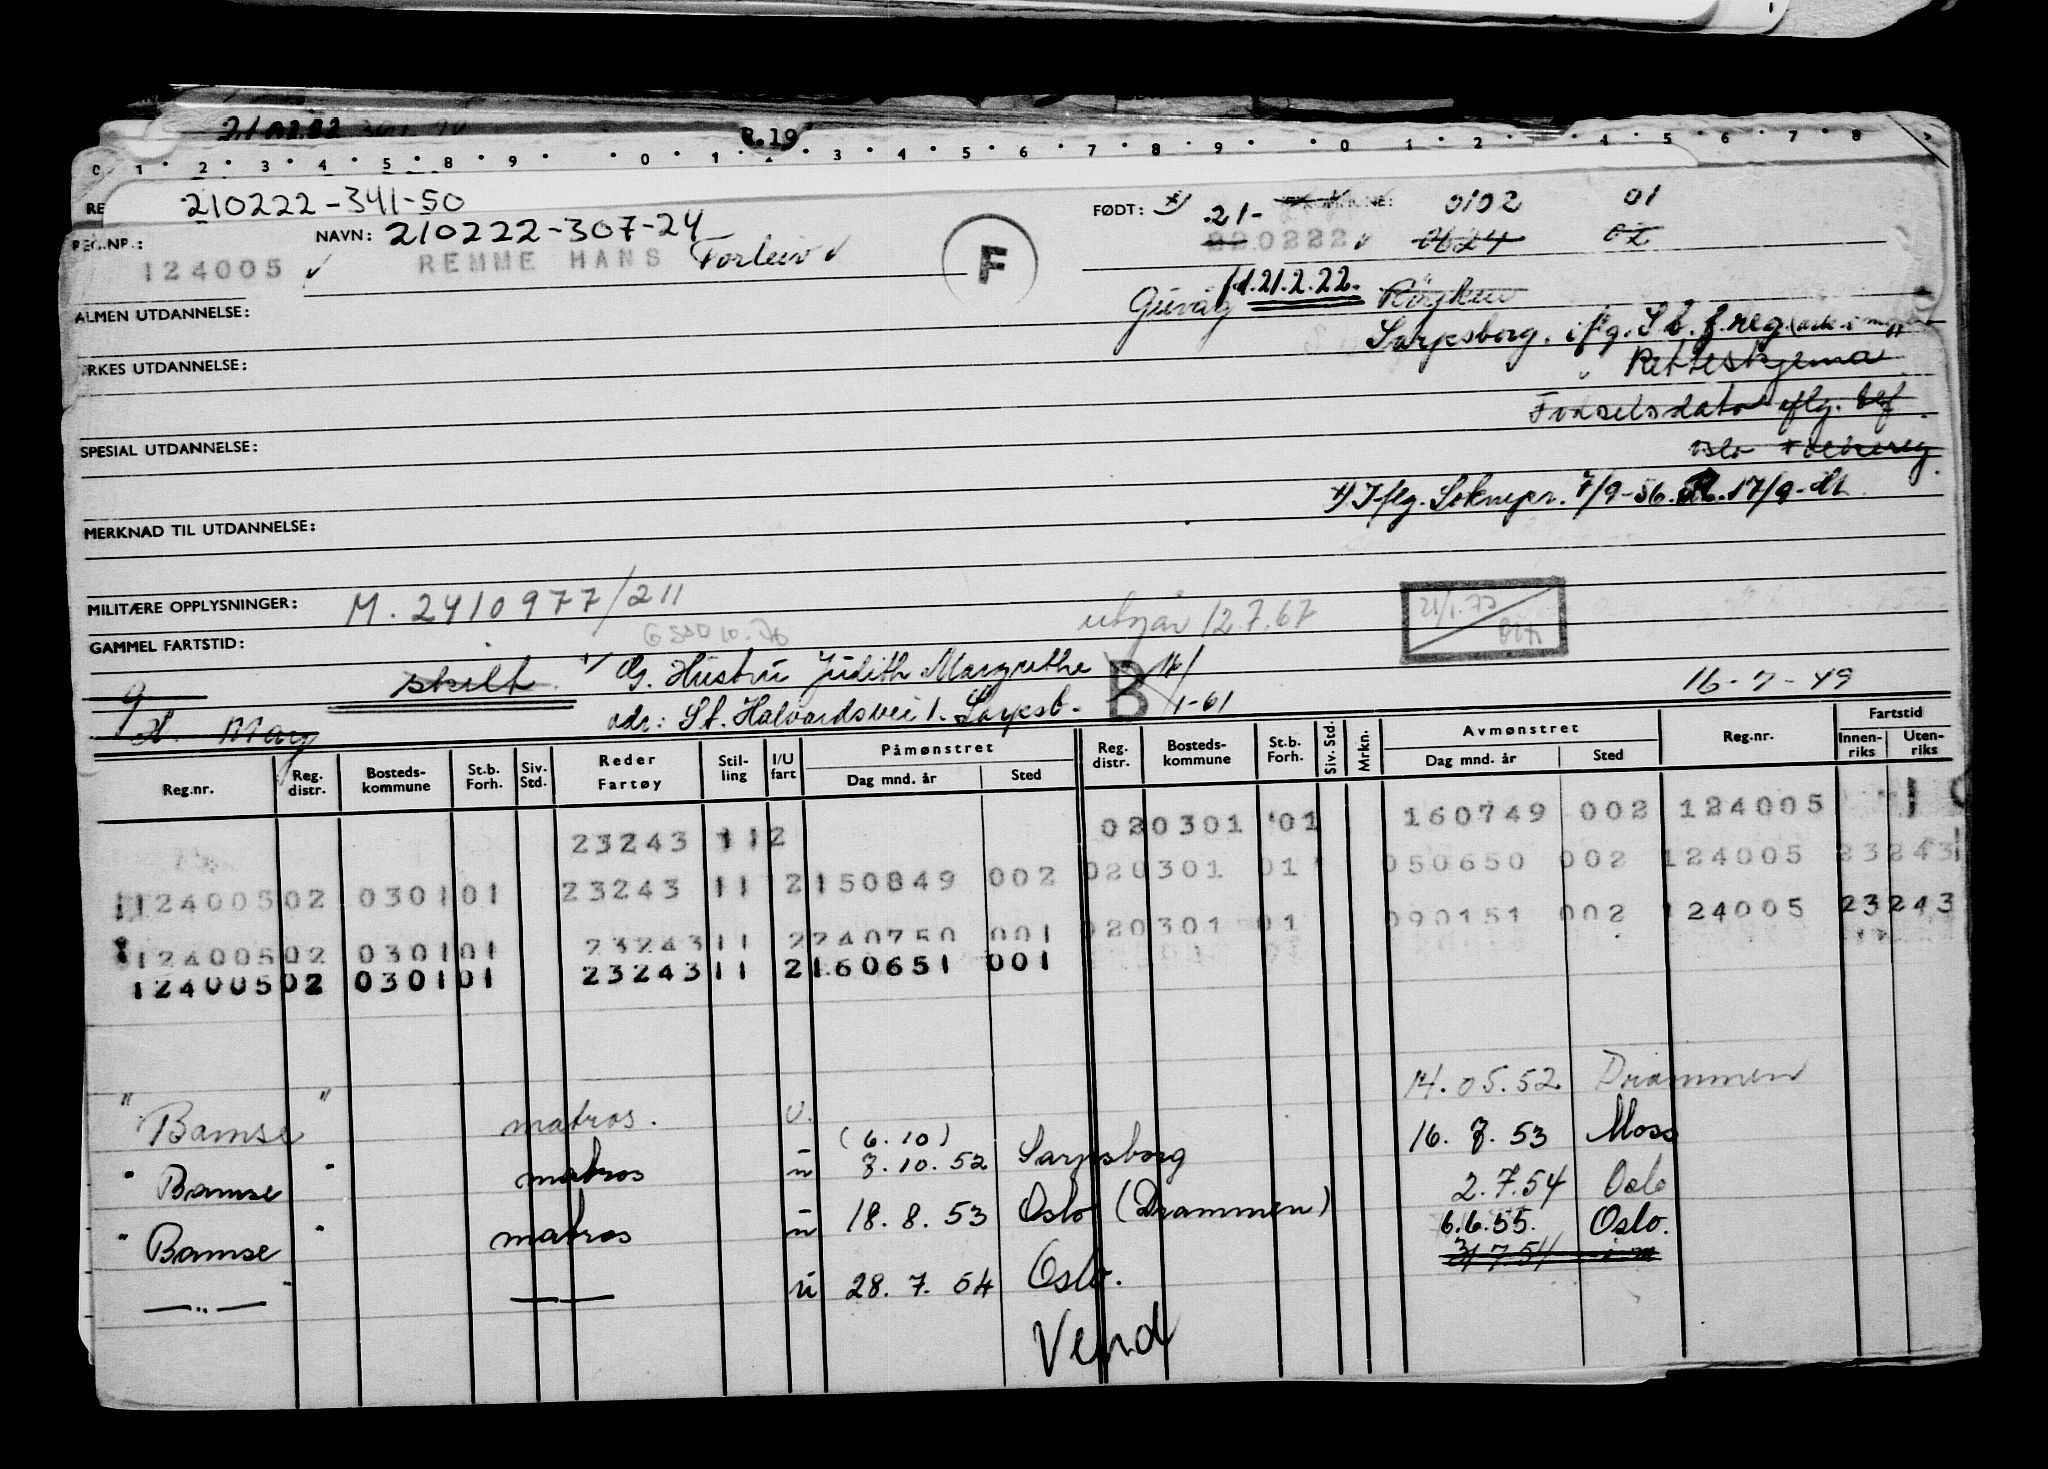 21.02.22
2.19
0 1 2 3 4 5 8 9 0 1 3 4 5 6 7 8 9 0 1 2 4 5 6 7 8
210222-341-50
REG.NR.: 124005 NAVN: 210222-307-24
REMME HANS Torleiv
F
FØDT: x) 21- 0102 01
220222 0624 02
f.d. 21.2.22. Røyken
ALMEN UTDANNELSE:
Sarpsborg. iflg. S.b. f.reg.
YRKES UTDANNELSE:
Retteskjema
Fødselsdato iflg. bef
SPESIAL UTDANNELSE:
Oslo Folkereg.
x) Iflg. 7/9-56. 17/9-
MERKNAD TIL UTDANNELSE:
MILITÆRE OPPLYSNINGER: M. 2410977/211
utgår 12.7.67
21/1.77
GAMMEL FARTSTID:
9 skilt G. Hustru Judith Margrethe B 1-61
16-7-49
adr: St. Halvardsvei 1. Sarpsb.
Reg.nr. Reg. distr. Bosteds- kommune St.b. Forh. Siv. Std. Reder Fartøy Stil- ling I/U fart Påmønstret Dag mnd. år Sted Reg. distr. Bosteds- kommune St.b. Forh. Siv. Std. Mrkn. Avmønstret Dag mnd. år Sted Reg.nr. Fartstid Innen- riks Uten- riks
23243 11 2 02 0301 01 160749 002 124005
124005 02 0301 01 23243 11 2 150849 002 02 0301 01 050650 002 124005 23243
124005 02 0301 01 23243 11 2 240750 001 020301 01 090151 002 124005 23243
124005 02 0301 01 23243 11 2 160651 001
14.05.52 Drammen
" Bamse " matros. U. (6.10) 16.7.53 Moss
" Bamse " matros u 7.10.52 Sarpsborg 2.7.54 Oslo
" Bamse " matros u 18.8.53 Oslo (Drammen) 6.6.55. Oslo.
31.7.54
—"— — — u 28.7.54 Oslo.
Vend